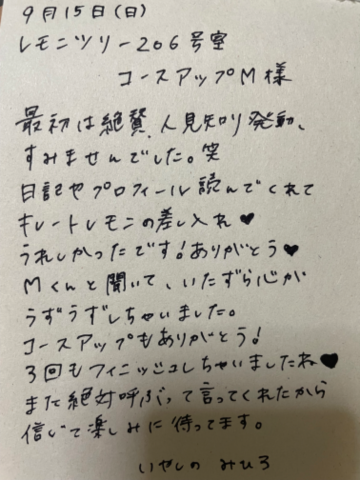 9月15日(日)
レモンツリー206号室
コースアップM様
最初は絶賛、人見知り発動、
すみませんでした。笑
日記やプロフィール読んでくれて
キレートレモンの差し入れ♥
うれしかったです!ありがとう♥
Mくんと聞いて、いたずら心が
うずうずしちゃいました。
コースアップもありがとう!
3回もフィニッシュしちゃいましたね♥
また絶対呼ぶって言ってくれたから
信じて楽しみに待ってます。
いやしの みひろ